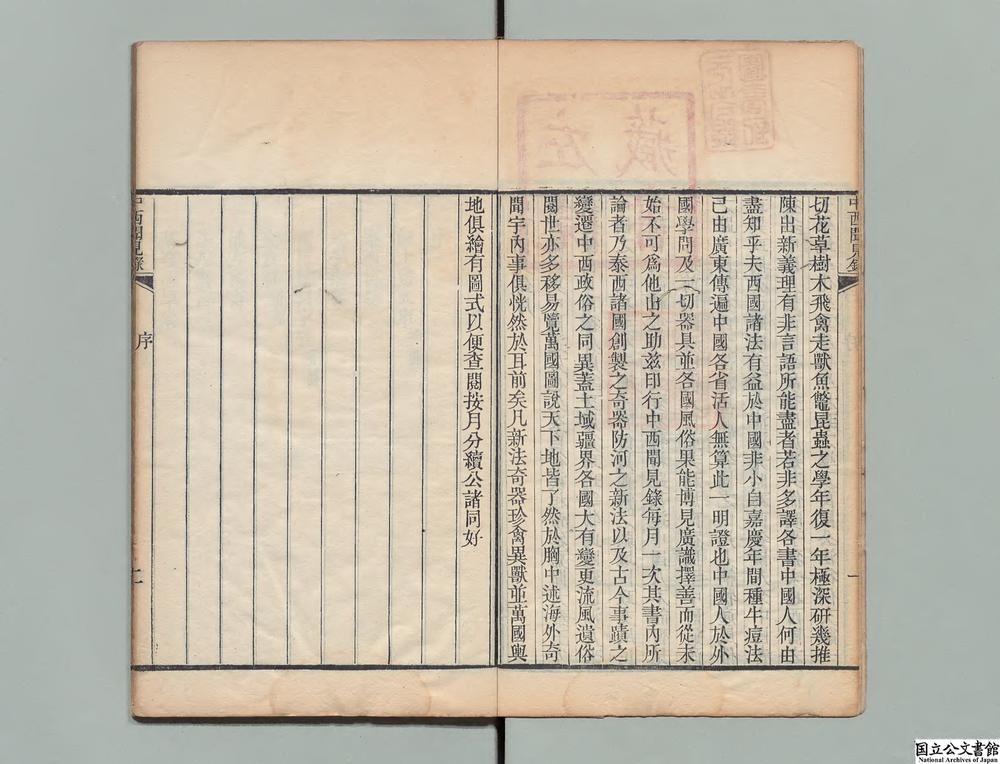 切花草樹木飛禽走獸魚鼈昆蟲之學年復一年極深研幾推
陳出新義理有非言語所能盡者若非多譯各書中國人何由
盡知乎夫西國諸法有益於中國非小自嘉慶年間種牛痘法
己由廣東傳遍中國各省活人無算此一明證也中國人於外
國學問及一切器具並各國風俗果能博見廣識擇善而從未
始不可爲他山之助茲印行中西聞見錄每月一次其書內所
論者乃泰西諸國創製之奇器防河之新法以及古今事蹟之
變遷中西政俗之同異蓋土域疆界各國大有變更流風遺俗
閱世亦多移易覽萬國圖說天下地皆了然於胸中述海外奇
聞宇內事俱恍然於耳前矣凡新法奇器珍禽異獸並萬國輿
地俱繪有圖式以便查閱按月分續公諸同好
中西聞見錄
序
国立公文書館
National Archives of Japan